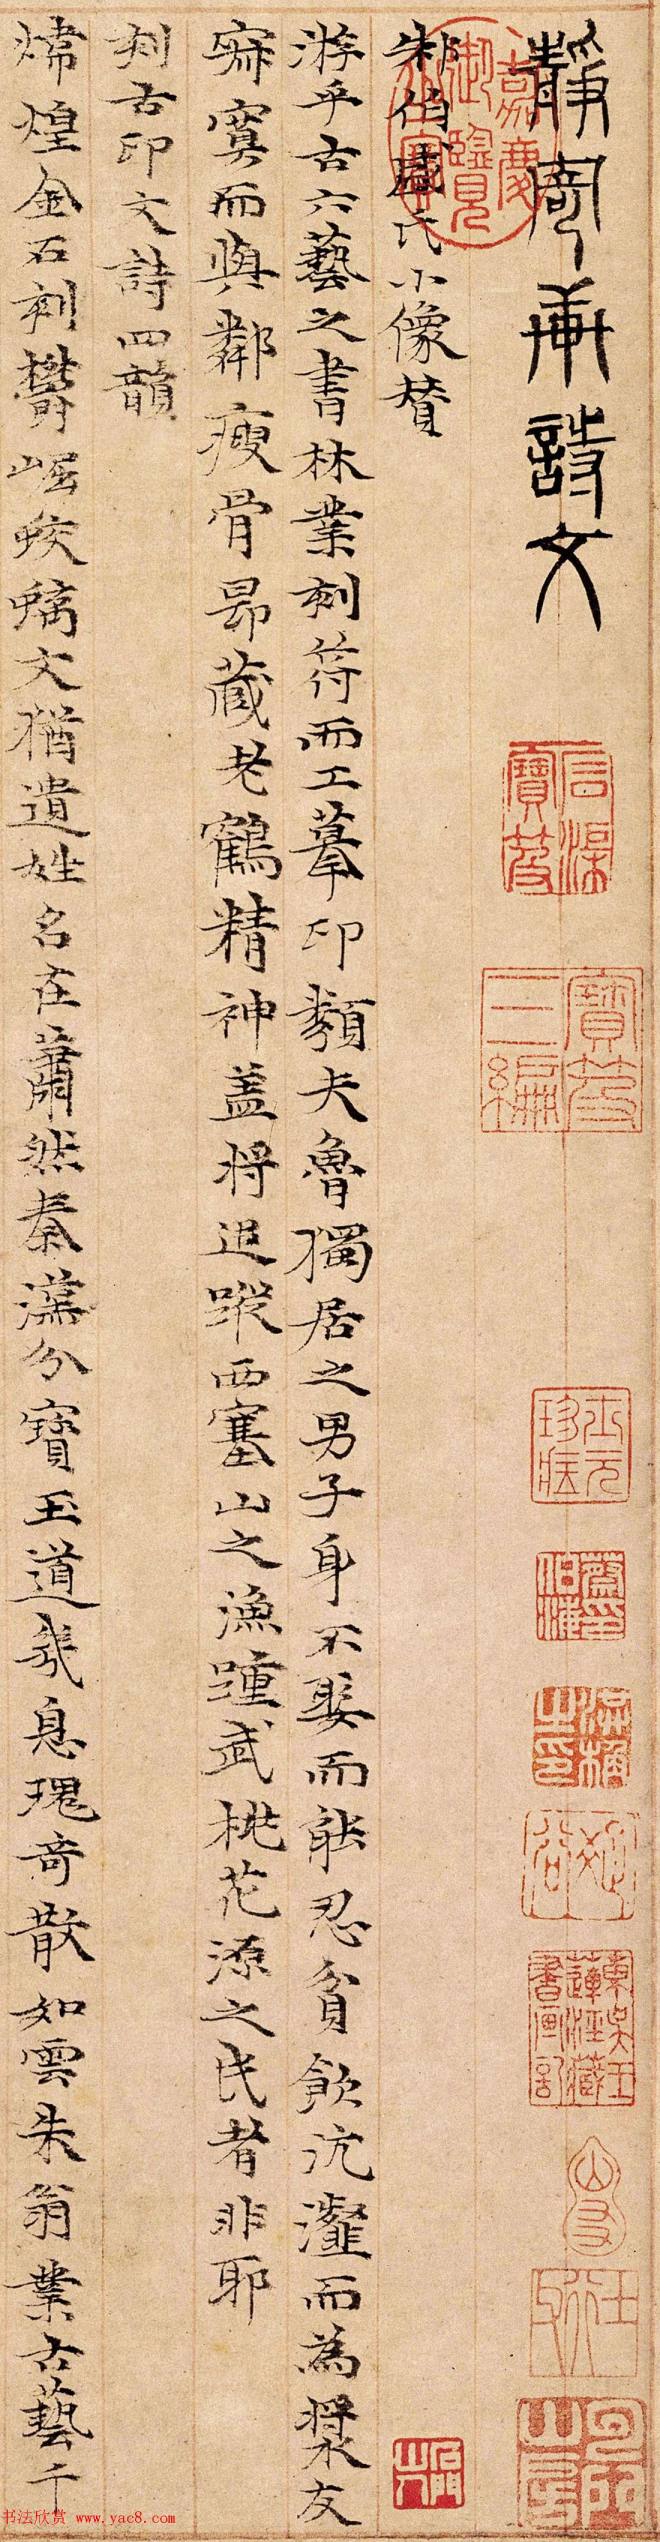 靜寄軒詩文
朱伯盛氏小像贊
游乎古六藝之書林業刻符而工摹印類夫魯獨居之男子身不娶而能忍貧飲沆瀣而為漿友
寂寞而與鄰瘦骨昂藏老鶴精神蓋將追蹤西塞山之漁踵武桃花源之民者非耶
刻古印文詩四韻
煒煌金石刻鬱崛蛟螭文猶遺姓名在蕭然秦漢分寶玉道或息瑰奇散如雲朱翁業古藝千
嘉慶御覽之寶
寶笈三編
书法欣赏 www.yac8.com